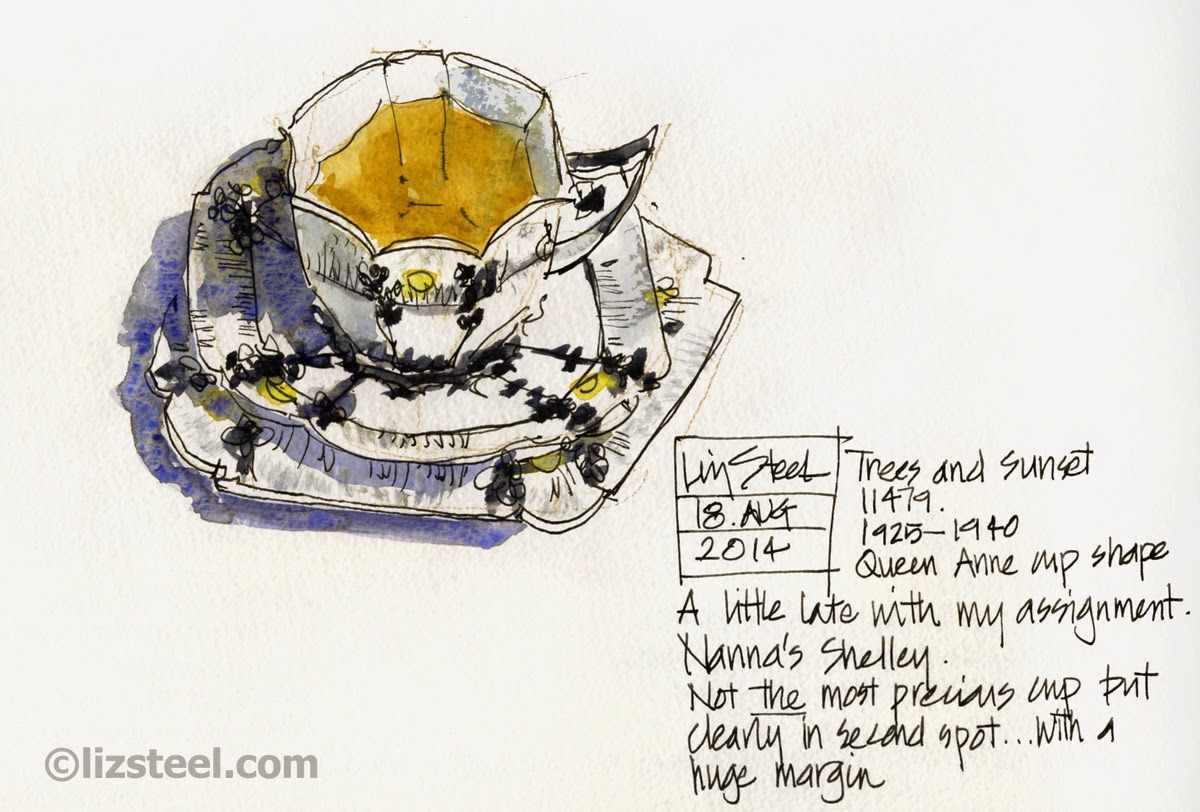 Liz Steel
18. AUG
2014
Trees and Sunset
11479.
1925-1940
Queen Anne cup shape
A little late with my assignment.
Nanna's Shelley.
Not the most precious cup but
clearly in second spot...with a
huge margin
©lizsteel.com